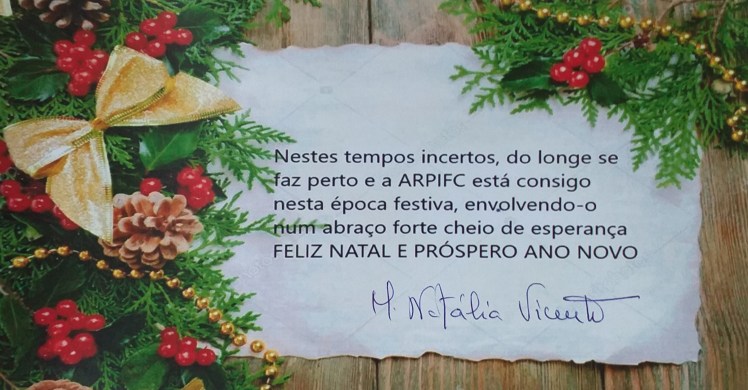 Nestes tempos incertos, do longe se
faz perto e a ARPIFC está consigo
nesta época festiva, envolvendo-o
num abraço forte cheio de esperança
FELIZ NATAL E PRÓSPERO ANO NOVO
M. Natália Vicente